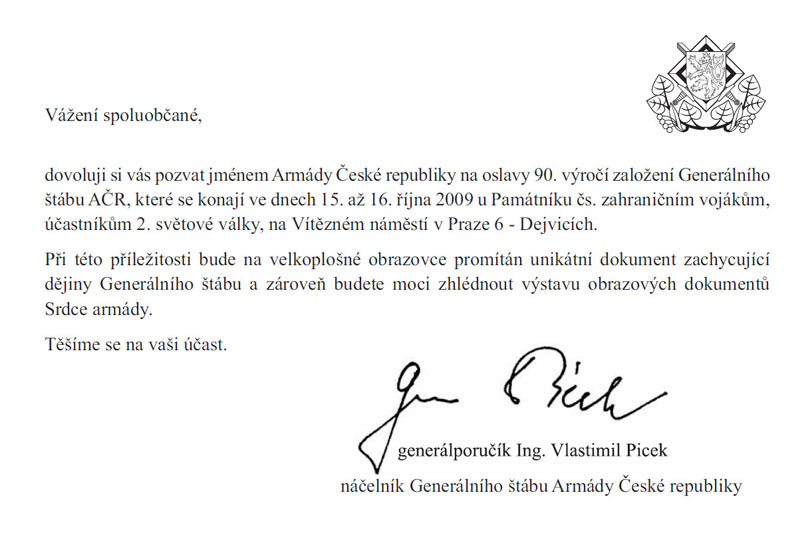 Vážení spoluobčané,
dovoluji si vás pozvat jménem Armády České republiky na oslavy 90. výročí založení Generálního
štábu AČR, které se konají ve dnech 15. až 16. října 2009 u Památníku čs. zahraničním vojákům,
účastníkům 2. světové války, na Vítězném náměstí v Praze 6 - Dejvicích.
Při této příležitosti bude na velkoplošné obrazovce promítán unikátní dokument zachycující
dějiny Generálního štábu a zároveň budete moci zhlédnout výstavu obrazových dokumentů
Srdce armády.
Těšíme se na vaši účast.
Gen Picek
generálporučík Ing. Vlastimil Picek
náčelník Generálního štábu Armády České republiky